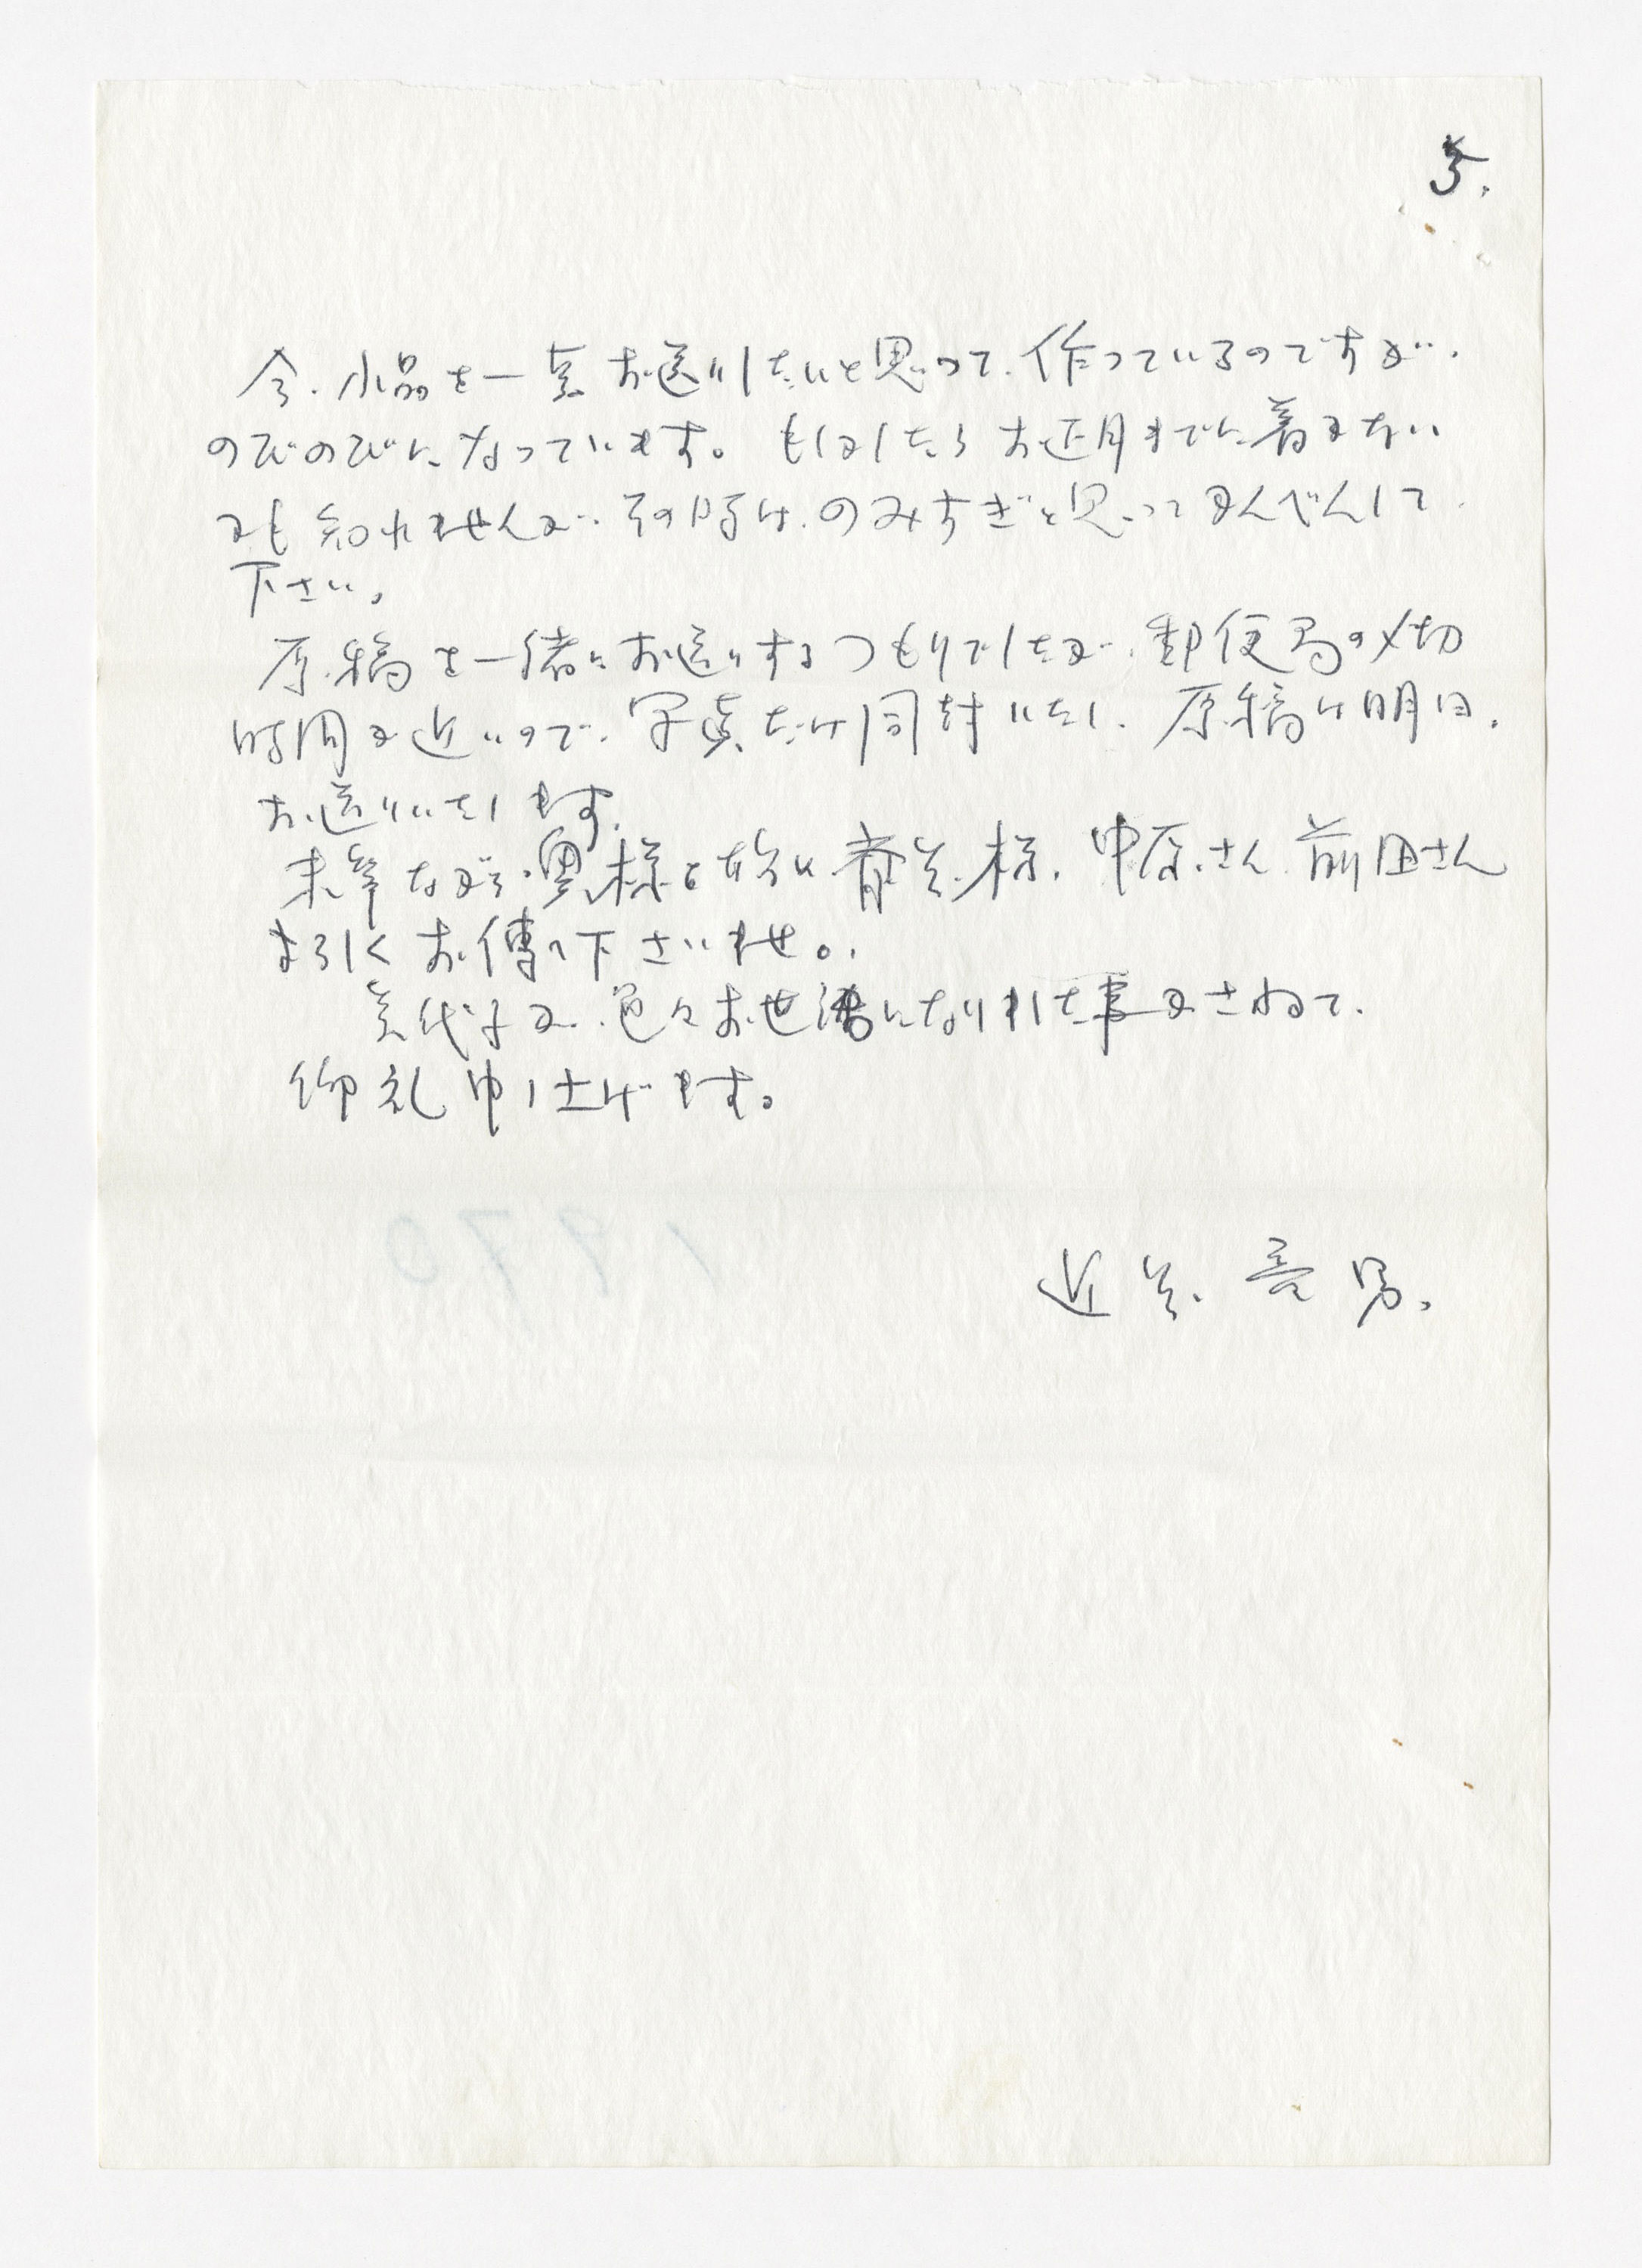 5.
今、小品を一点お送りしたいと思って、作っているのですが、
のびのびになっています。もしかしたらお正月までに着かない
かも知れませんが、その時は、のみすぎと思ってかんべんして
下さい。
原稿を一緒にお送りするつもりでしたが、郵便局の〆切
時間が近いので、写真だけ同封いたし、原稿は明日、
お送りいたします。
末筆ながら、奥様を始め、斉矢様、中原さん、前田さん
よろしくお傳へ下さいませ。
美代子が、色々お世話になりました事かさねて、
御礼申し上げます。
近矢
男。
1970